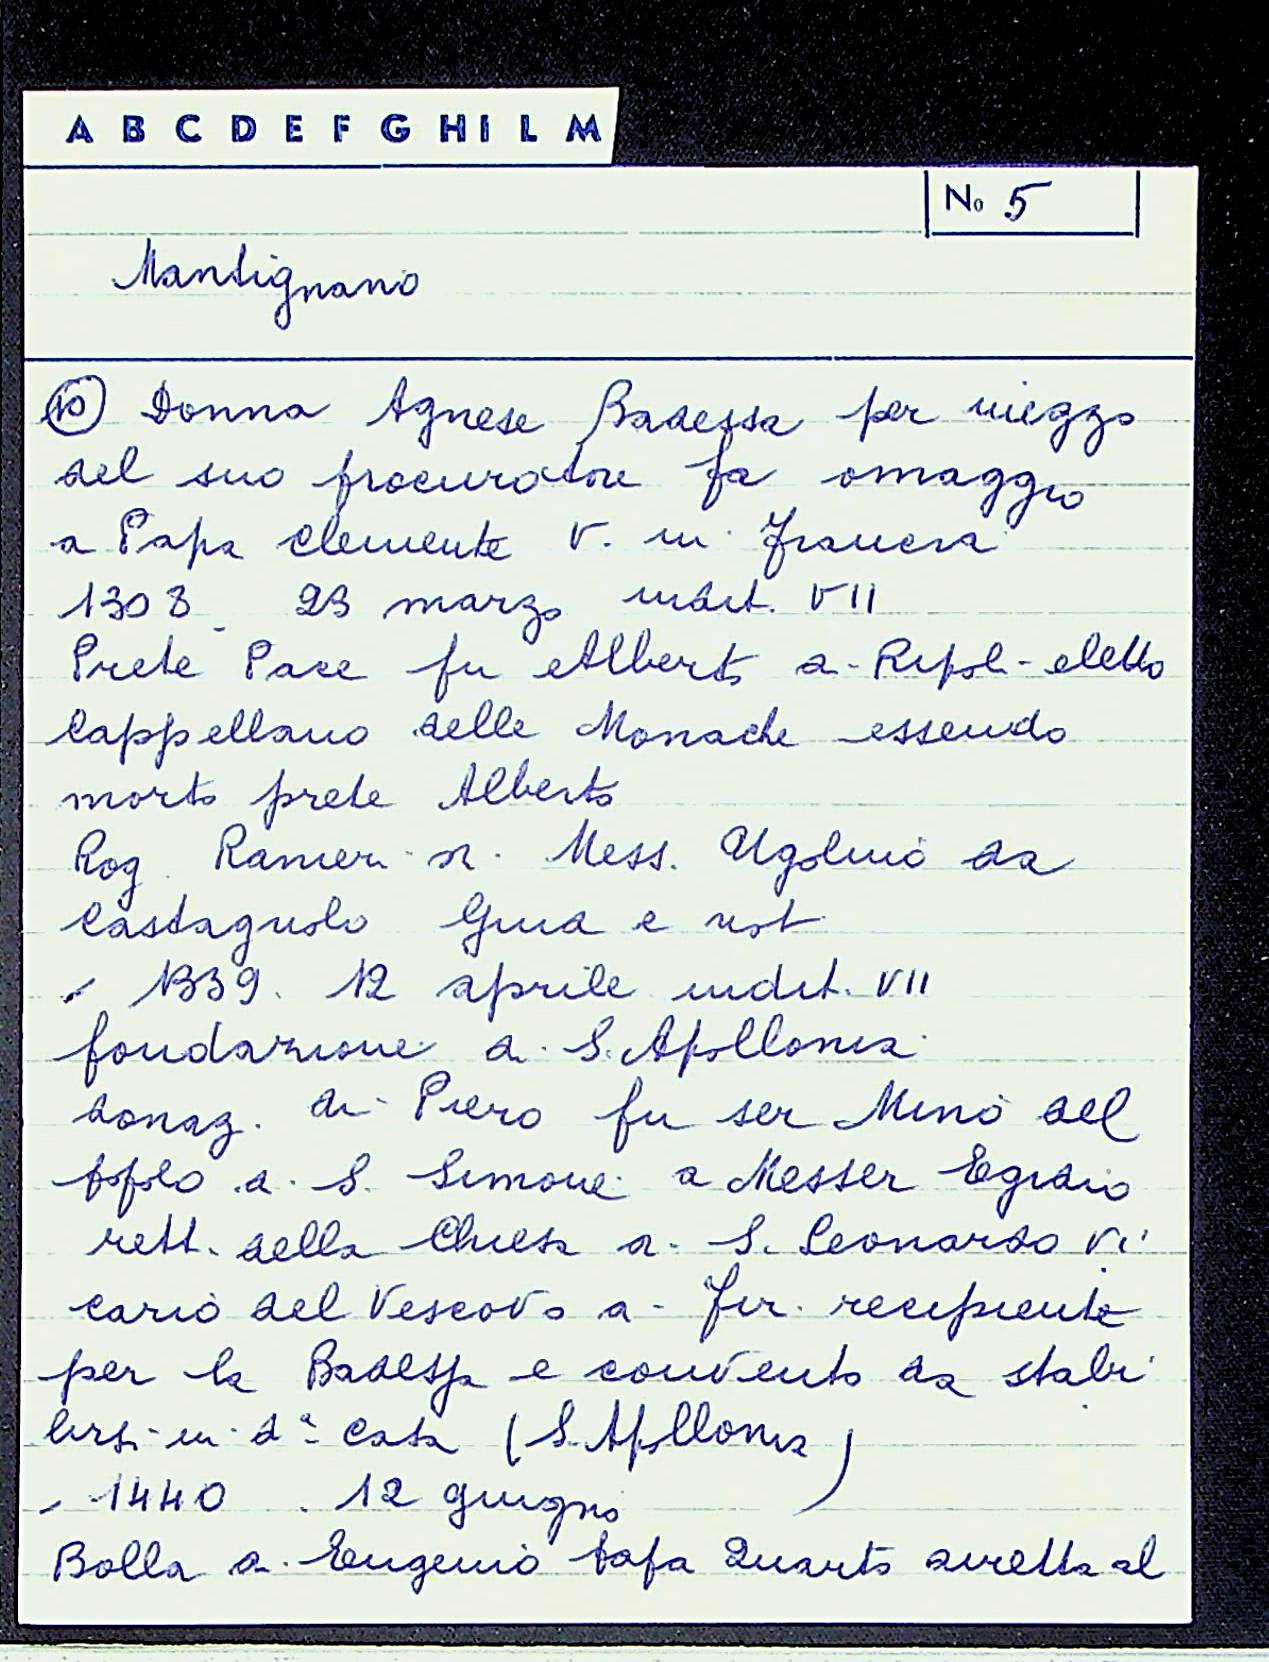 A B C D E F G H I L M
No 5
Mantignano
10 Donna Agnese Badessa per mezzo
del suo procuratore fa omaggio
a Papa Clemente V. in Francia
1308 23 marzo indit. VII
Prete Pace fu Alberto di Ripoli eletto
Cappellano delle Monache essendo
morto prete Alberto
Rog Ranieri di Mess. Ugolino da
Castagnolo Giud e not
1339. 12 aprile indit. VII
fondazione di S. Apollonia
donaz. di Piero fu ser Mino del
popolo di S. Simone a Messer Egidio
rett. della Chiesa di S. Leonardo vi
cario del Vescovo di Fir. recipiente
per la Badessa e convento da stabi
lirsi in da casa (S. Apollonia)
1440 12 giugno
Bolla di Eugenio Papa Quarto diretta al